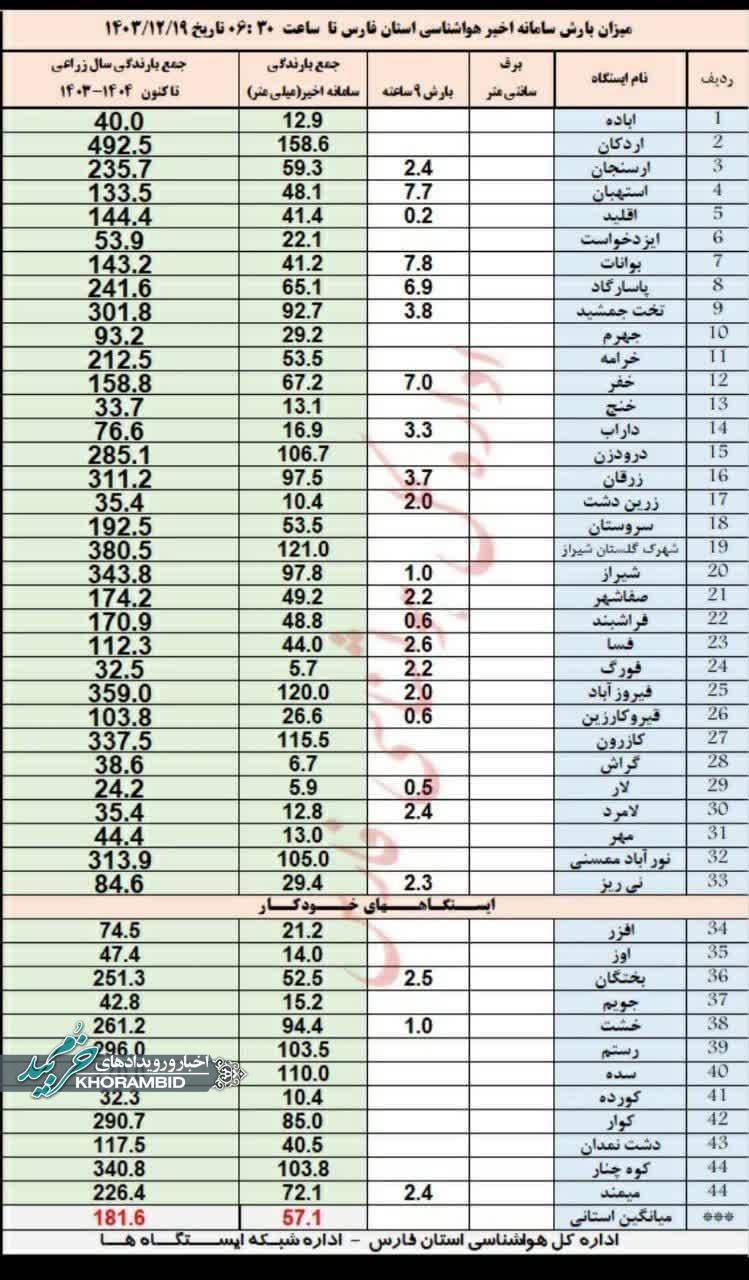 میزان بارش سامانه اخیر هواشناسی استان فارس تا ساعت ۰۶:۳۰ تاریخ ۱۴۰۳/۱۲/۱۹
ردیف نام ایستگاه برف سانتی متر بارش ۹ ساعته جمع بارندگی سامانه اخیر(میلی متر) جمع بارندگی سال زراعی تا کنون ۱۴۰۴-۱۴۰۳
1 اباده 12.9 40.0
2 اردکان 158.6 492.5
3 ارسنجان 2.4 59.3 235.7
4 استهبان 7.7 48.1 133.5
5 اقلید 0.2 41.4 144.4
6 ایزدخواست 22.1 53.9
7 بوانات 7.8 41.2 143.2
8 پاسارگاد 6.9 65.1 241.6
9 تخت جمشید 3.8 92.7 301.8
10 جهرم 29.2 93.2
11 خرامه 53.5 212.5
12 خفر 7.0 67.2 158.8
13 خنج 13.1 33.7
14 داراب 3.3 16.9 76.6
15 درودزن 106.7 285.1
16 زرقان 3.7 97.5 311.2
17 زرین دشت 2.0 10.4 35.4
18 سروستان 53.5 192.5
19 شهرک گلستان شیراز 121.0 380.5
20 شیراز 1.0 97.8 343.8
21 صفاشهر 2.2 49.2 174.2
22 فراشبند 0.6 48.8 170.9
23 فسا 2.6 44.0 112.3
24 فورگ 2.2 5.7 32.5
25 فیروزآباد 2.0 120.0 359.0
26 قیروکارزین 0.6 26.6 103.8
27 کازرون 115.5 337.5
28 گراش 6.7 38.6
29 لار 0.5 5.9 24.2
30 لامرد 2.4 12.8 35.4
31 مهر 13.0 44.4
32 نورآباد ممسنی 105.0 313.9
33 نی ریز 2.3 29.4 84.6
ایستگاههای خودکار
34 افزر 21.2 74.5
35 اوز 14.0 47.4
36 بختگان 2.5 52.5 251.3
37 جویم 15.2 42.8
38 خشت 1.0 94.4 261.2
39 رستم 103.5 296.0
40 سده 110.0
41 کورده 10.4 32.3
42 کوار 85.0 290.7
43 دشت نمدان 40.5 117.5
44 کوه چنار 103.8 340.8
44 میمند 2.4 72.1 226.4
*** میانگین استانی 57.1 181.6
اداره کل هواشناسی استان فارس - اداره شبکه ایستگاه ها
اخبار و رویدادهای
خرمبید
KHORAMBID